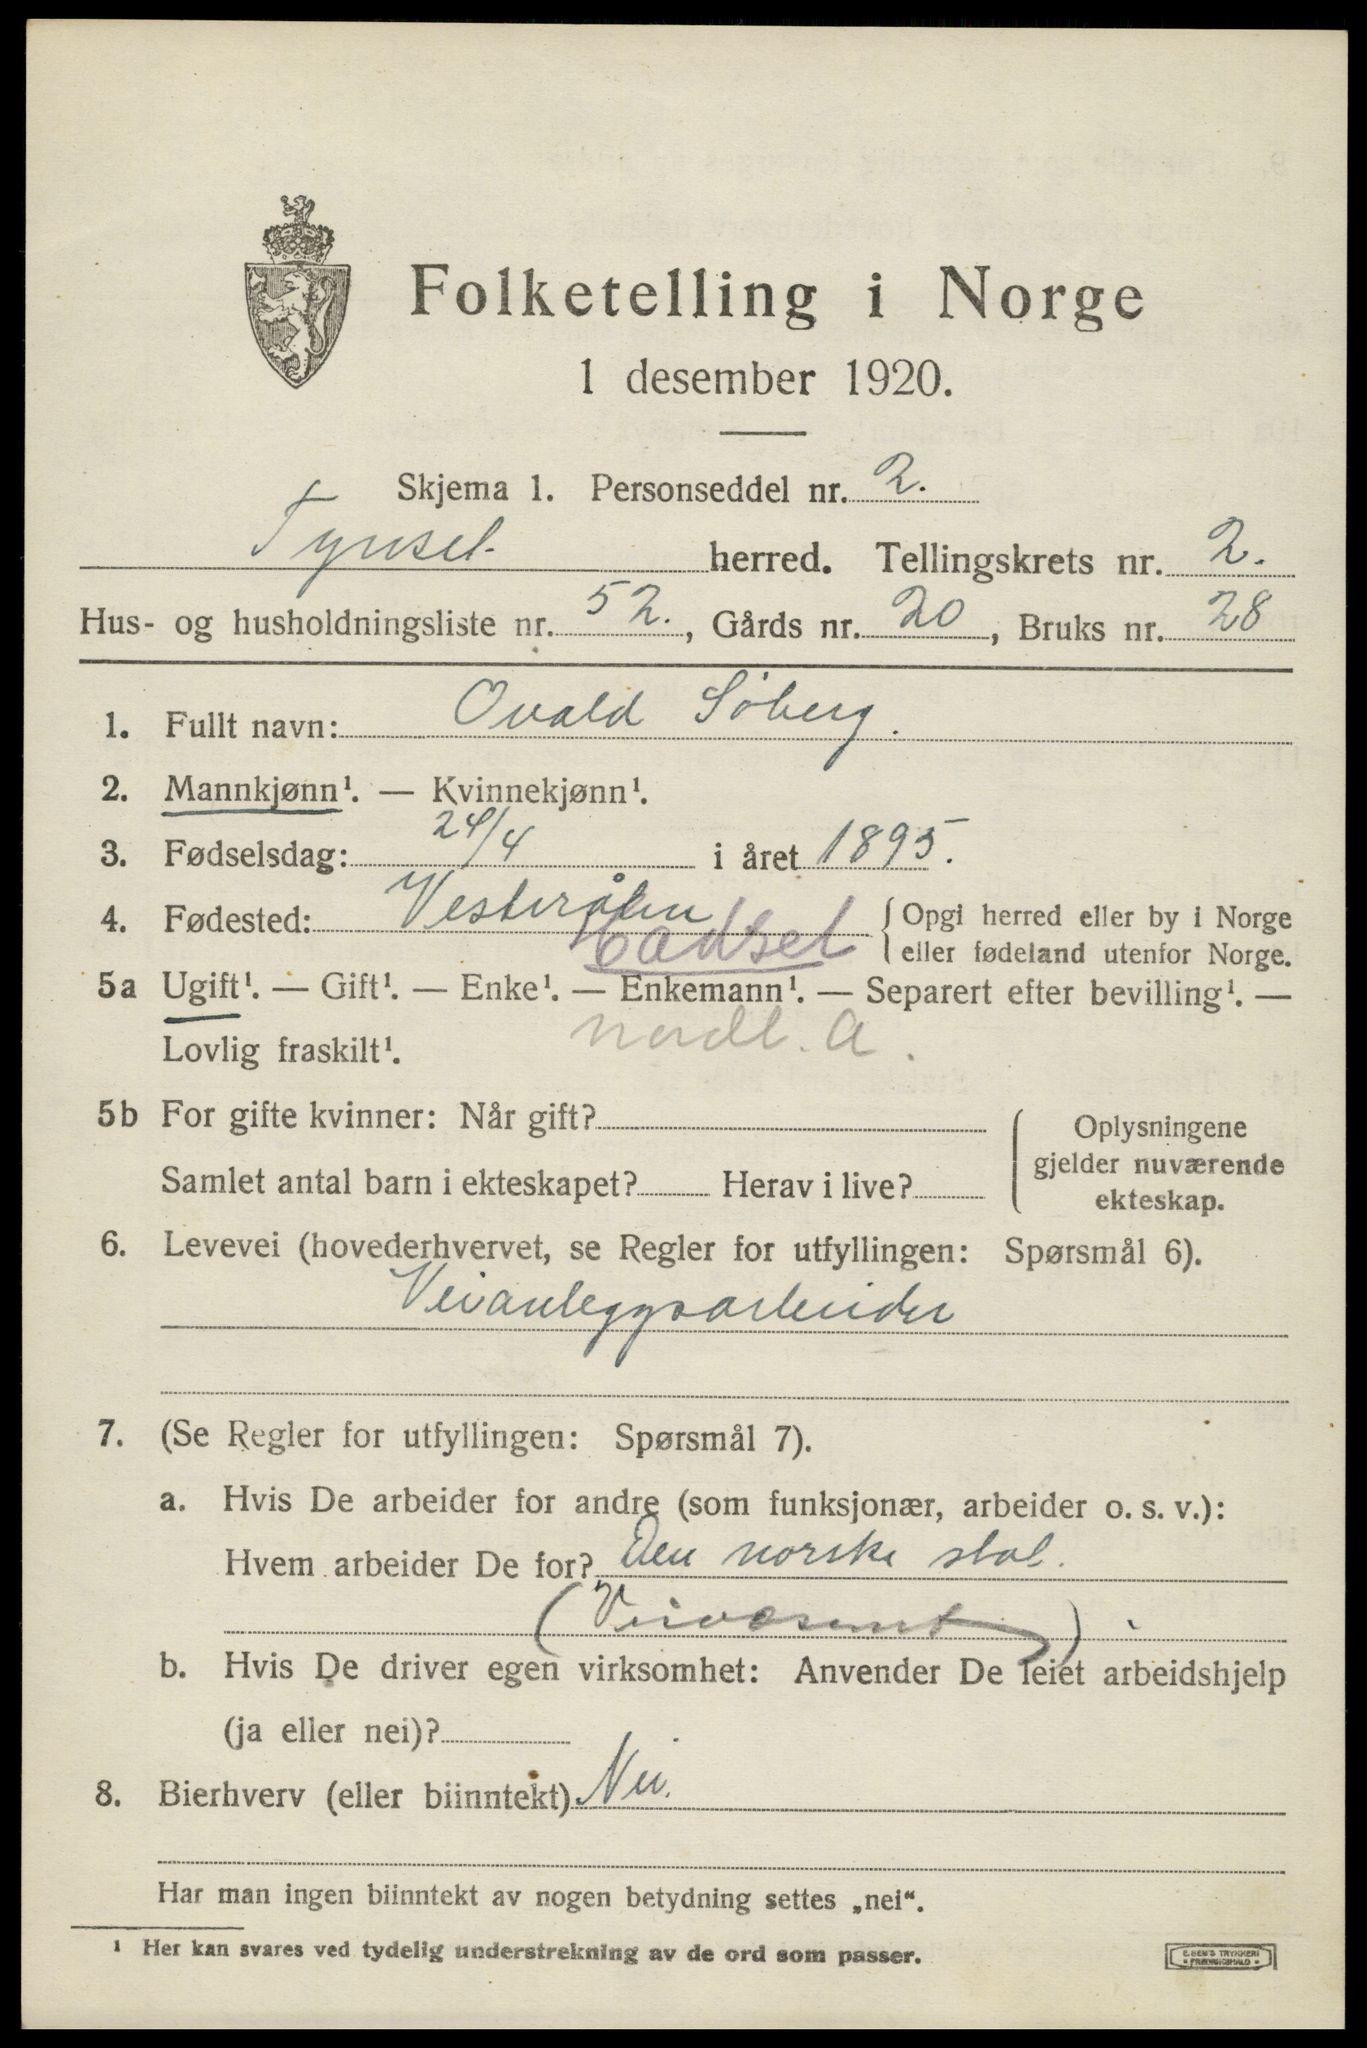 Folketelling i Norge
1 desember 1920.
Skjema 1. Personseddel nr. 2.
Tynset herred. Tellingskrets nr. 2.
Hus- og husholdningsliste nr. 52., Gårds nr. 20, Bruks nr. 28
1. Fullt navn: Ovald Söberg.
2. Mannkjønn¹. — Kvinnekjønn¹.
3. Fødselsdag: 24/4 i året 1895.
4. Fødested: Vesterålen { Opgi herred eller by i Norge
Hadsel eller fødeland utenfor Norge.
5a Ugift¹. — Gift¹. — Enke¹. — Enkemann¹. — Separert efter bevilling¹. —
Nordl. A.
Lovlig fraskilt¹.
5b For gifte kvinner: Når gift?
Samlet antal barn i ekteskapet? Herav i live?
Oplysningene
gjelder nuværende
ekteskap.
6. Levevei (hovederhvervet, se Regler for utfyllingen: Spørsmål 6).
Veianleggsarbeider
7. (Se Regler for utfyllingen: Spørsmål 7).
a. Hvis De arbeider for andre (som funksjonær, arbeider o. s. v.):
Hvem arbeider De for? Den norske stat.
(Veivæsenet)
b. Hvis De driver egen virksomhet: Anvender De leiet arbeidshjelp
(ja eller nei)?
8. Bierhverv (eller biinntekt) Nei.
Har man ingen biinntekt av nogen betydning settes „nei“.
¹ Her kan svares ved tydelig understrekning av de ord som passer.
E. SEM'S TRYKKERI
FREDRIKSHALD